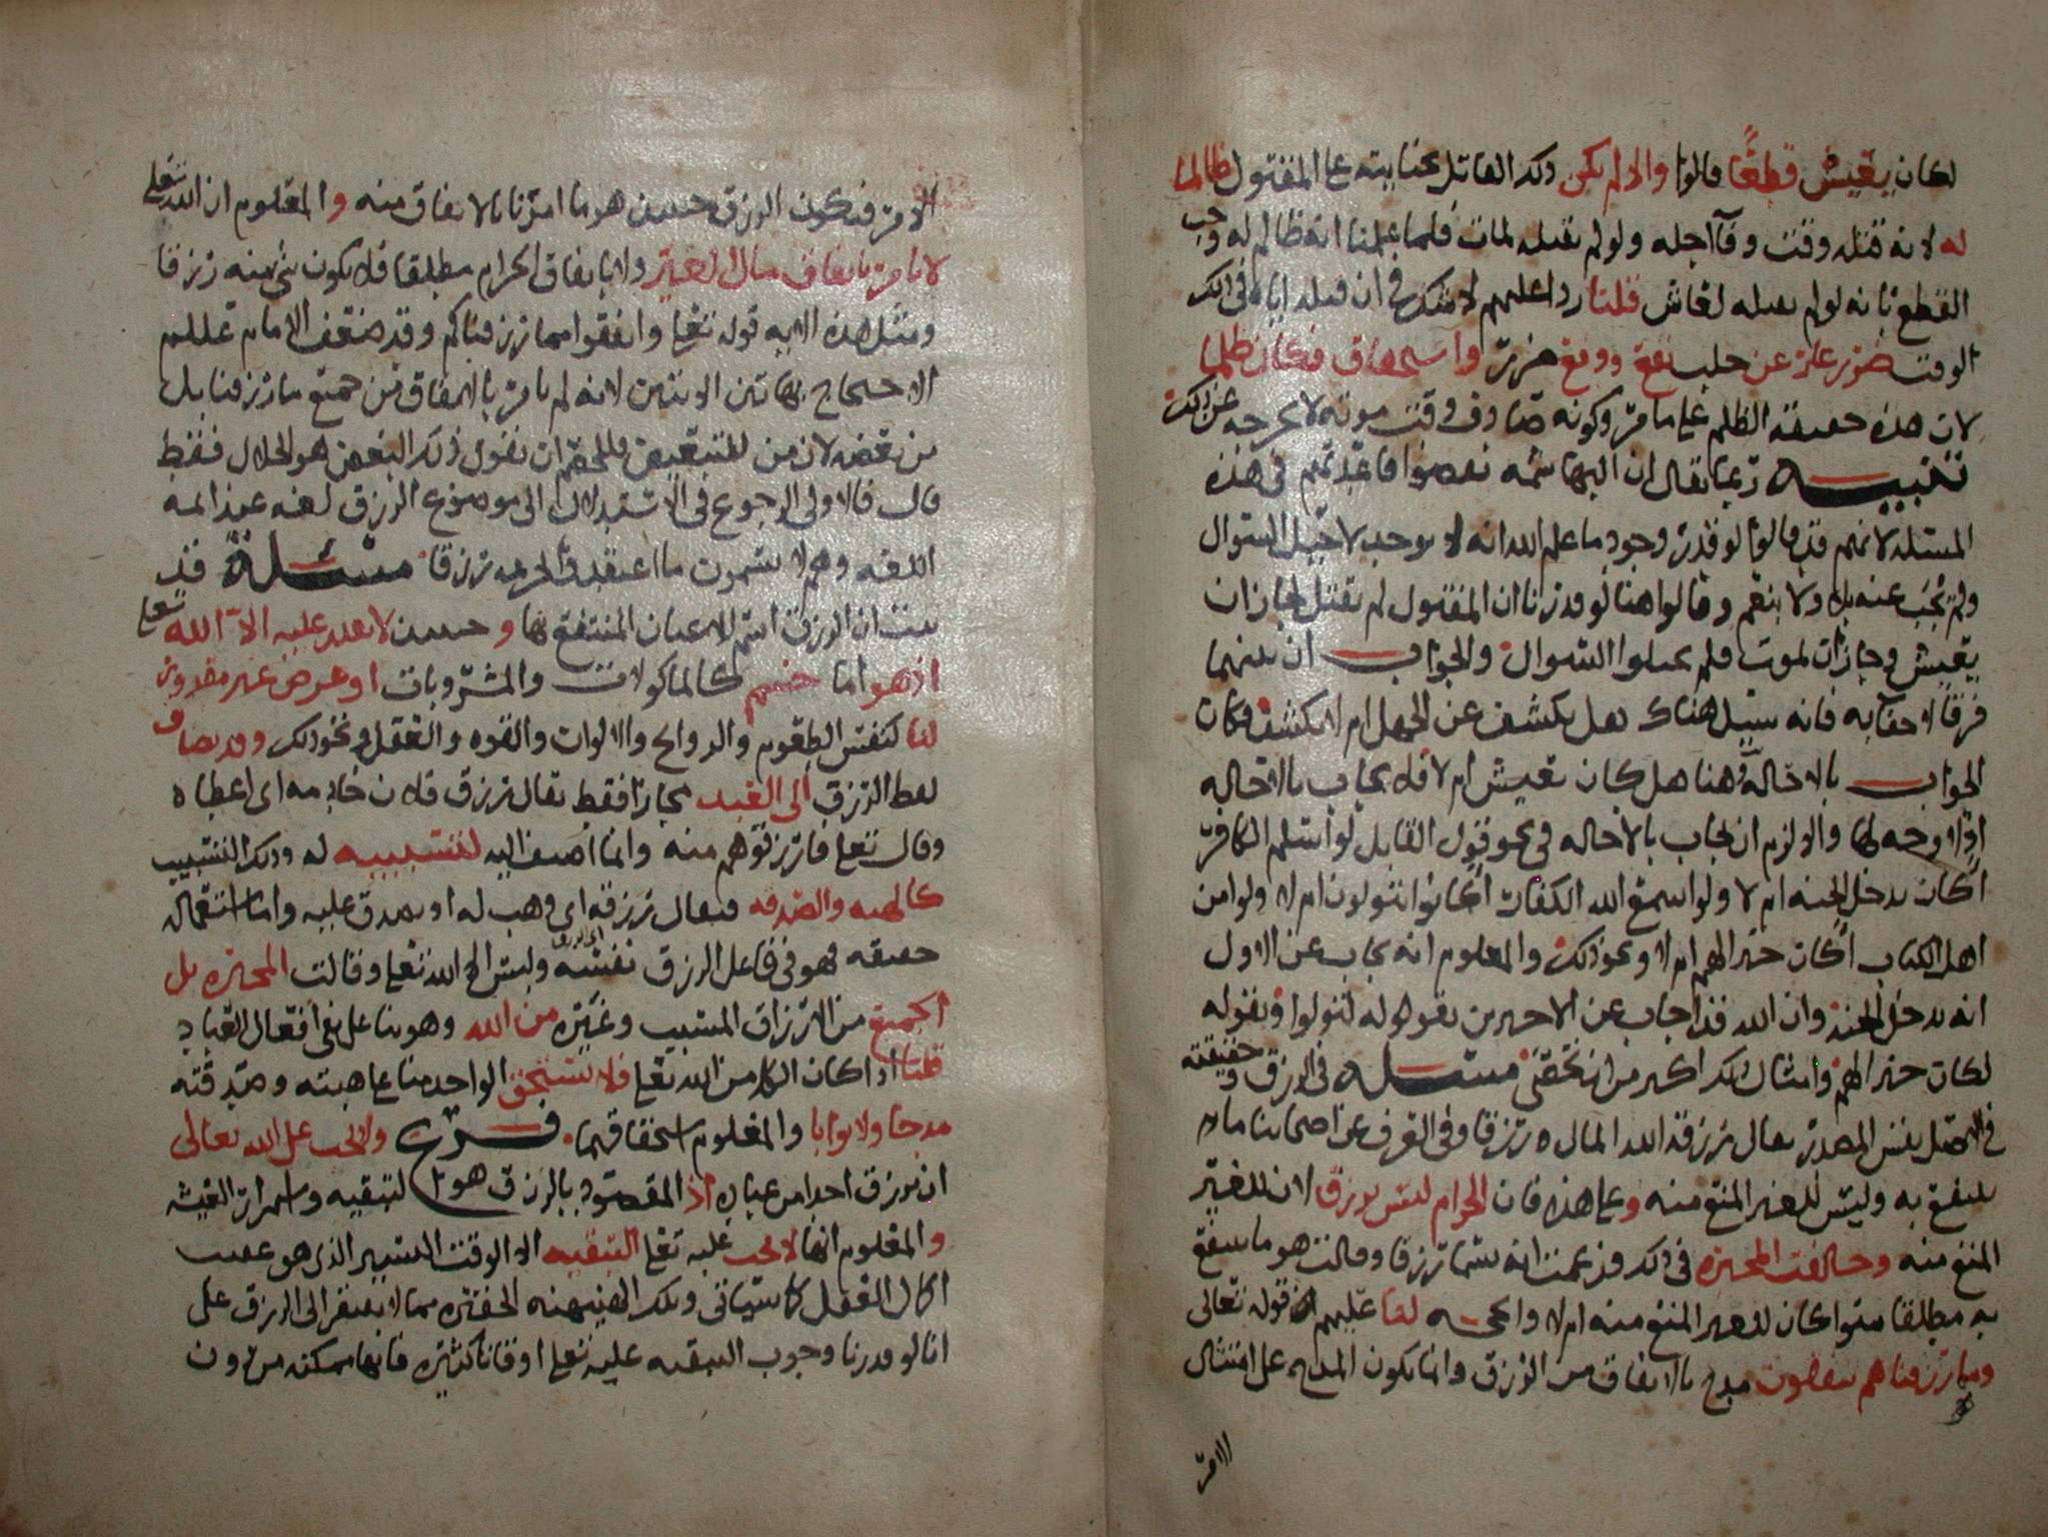 لكان يعيش قطعا قالوا والا لم يكن ذلك القاتل بجنايته على المقتول ظالما
له لانه قتله وقت وفآ اجله ولو لم يقتله لمات فلما علمنا انه ظالم له وجب
القطع بانه لو لم يقتله لعاش قلنا ردا عليهم لا شك في ان قتله اياه في ذلك
الوقت ضرر عار عن جلب نفع ودفع ضرر واستحقاق فكان ظلما
لان هذه حقيقة الظلم على ما مر وكونه صادف وقت موته لا يخرجه عن ذلك
تنبيه ربما يقال ان البهاشمه نقضوا قاعدتهم في هذه
المسئله لانهم قد قالوا لو قدر وجود ما علم الله انه لا يوجد لاحيل السوال
ولم يجب عنه بلا ولا بنعم وقالوا هنا لو قدرنا ان المقتول لم يقتل لجاز ان
يعيش وجاز ان يموت فلم يحيلوا السوال والجواب ان بينهما
فرقا لا خفا به فانه سئل هناك هل يكشف عن الجهل ام لا يكشف فكان
الجواب بالاحاله وهنا هل كان يعيش ام لا فلا يجاب بالاحاله
اذ لا وجه لها والا لزم ان يجاب بالاحاله في نحو قول القايل لو اسلم الكافر
اكان يدخل الجنه ام لا ولو اسمع الله الكفار اكانوا يتولون ام لا ولو امن
اهل الكتاب اكان خيرا لهم ام لا ونحو ذلك والمعلوم انه يجاب عن الاول
انه يدخل الجنه وان الله قد اجاب عن الاخيرين بقوله لتولوا وبقوله
لكان خيرا لهم وامثال ذلك اكثر من ان تحصى مسئله في الرزق وحقيقته
في الاصل نفس المصدر يقال رزقه الله المال رزقا وفي العرف عن اصحابنا ما
ينتفع به وليس للغير المنع منه وعلى هذه فان الحرام ليس برزق لان للغير
المنع منه وخالفت المجبره في ذلك فزعمت انه يسما رزقا وقالت هو ما ينتفع
به مطلقا سوا كان للغير المنع منه ام لا والحجه لنا عليهم قوله تعالى
ومما رزقناهم ينفقون مدح بالانفاق من الرزق وانما يكون المدح على امتثال
الامر
الامر فيكون الرزق حينئذ هو ما امرنا بالانفاق منه والمعلوم ان الله تعلى
لا يامر بانفاق مال الغير ولا بانفاق الحرام مطلقا فلا يكون شي منه رزقا
ومثل هذه الايه قوله تعلى وانفقوا مما رزقناكم وقد ضعف الامام عللم
الاحتجاج بهاتين الايتين لانه لم يامر بالانفاق من جميع ما رزقنا بل
من بعضه لان من للتبعيض فللخصم ان يقول ذلك البعض هو الحلال فقط
قال فالاولى الرجوع في الاستدلال الى موضوع الرزق لغه عند ايمه
اللغه وهم لا يسمون ما اعتقدوا تحريمه رزقا مسئلة قد
ثبت ان الرزق اسم للاعيان المنتفع بها وحينئذ لا يقدر عليه الا الله تعلى
اذ هو اما جسم كالماكولات والمشروبات او عرض غير مقدور
لنا كنفس الطعوم والروايح والالوان والقوه والعقل ونحو ذلك وقد يضاف
لفظ الرزق الى العبد مجازا فقط يقال رزق فلان خادمه اي اعطاه
وقال تعلى فارزقوهم منه وانما اضيف اليه لتسببه له وذلك التسبيب
كالهبه والصدقه فيقال رزقه اي وهب له او تصدق عليه واما استعماله
حقيقه فهو في فاعل الرزق نفسه اي الرزق وليس الا الله تعلى وقالت المجبره بل
الجميع من الارزاق المسبب وغيره من الله وهو بنا على نفي افعال العباد
قلنا اذا كان الكل من الله تعلى فلا يستحق الواحد منا على هبته وصدقته
مدحا ولا ثوابا والمعلوم استحقاقهما فرع ولا يجب على الله تعالى
ان يرزق احدا من عباده اذ المقصود بالرزق هو التبقيه واستمرار العيشه
والمعلوم انها لا تجب عليه تعلى التبقيه الا الوقت اليسير الذي هو عقيب
اكمال العقل كما سياتي وتلك الهنيهه الحقيره مما لا يفتقر الى الرزق على
انا لو قدرنا وجوب التبقيه عليه تعلى اوقاتا كثيره فانها ممكنه من دون